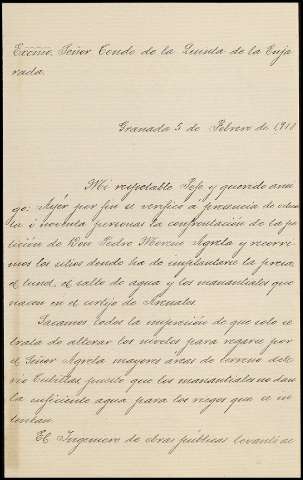 Excmo. Señor Conde de la Quinta de la Enja
rada.
Granada 5 de Febrero de 1910
Mi respetable Jefe y querido ami
go: Ayer por fin se verificó a presencia de ochen
ta ó noventa personas la confrontación de la pe
tición de Don Pedro Moreno Agrela y recorri
mos los sitios donde ha de implantarse la presa,
el tunel, el salto de agua y los manantiales que
nacen en el cortijo de Arenales.
Sacamos todos la impresión de que solo se
trata de alterar los niveles para regarse por
el Señor Agrela mayores áreas de terreno del
río Cubillas, puesto que los manantiales no dan
la suficiente agua para los riegos que se in
tentan.
El Ingeniero de obras públicas levantó ac